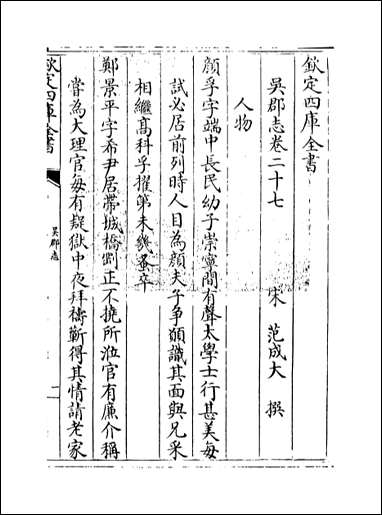 欽定四庫全書
吳郡志卷二十七
宋 范成大 撰
人物
顔孚字端中長民幼子崇寧間有聲太學士行甚美每
試必居前列時人目為顔夫子争願識其面與兄采
相繼髙科孚擢第未幾蚤卒
鄭景平字希尹居帶城橋剛正不撓所涖官有廉介稱
嘗為大理官毎有疑獄中夜拜禱蘄得其情請老家
欽定四庫全書
吳郡志